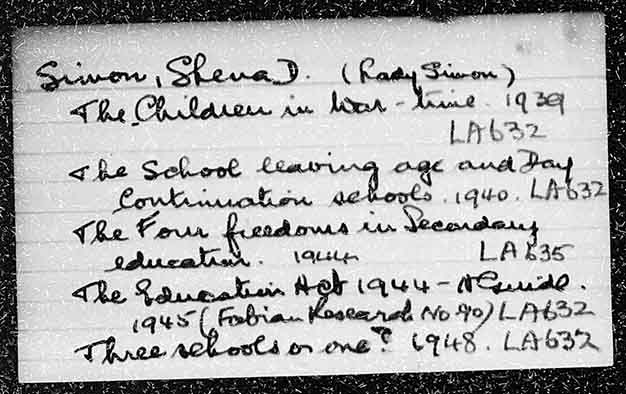 Simon, Shena D. (Lady Simon)
The Children in War-time. 1939
LA632
The School leaving age and Day
Continuation schools. 1940. LA632
The Four freedoms in Secondary
education. 1944. LA635
The Education Act 1944 - A Guide.
1945 (Fabian Research No 90) LA632
Three schools or one? 1948. LA632